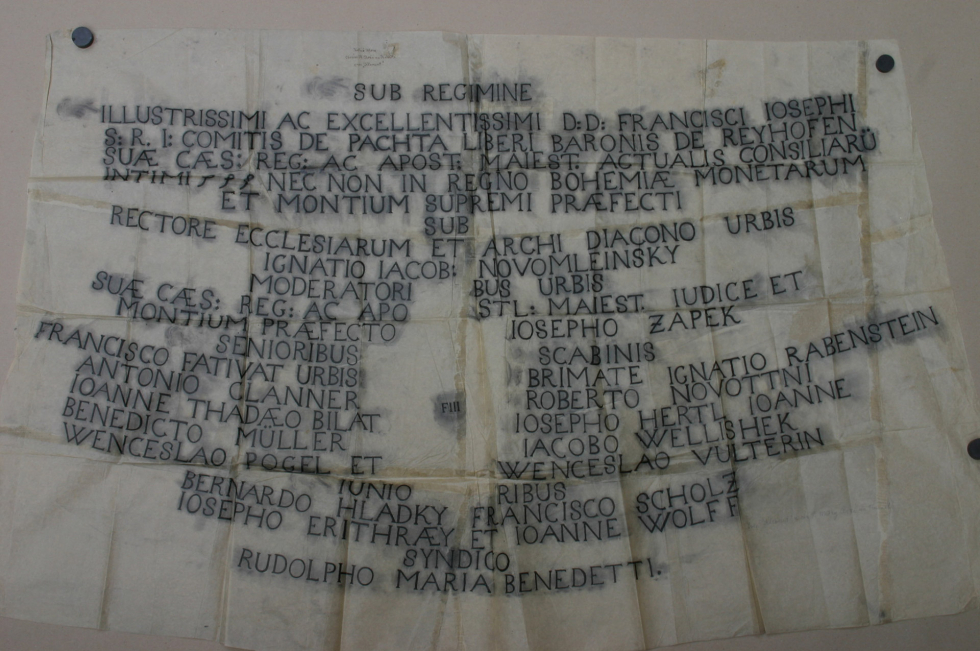 SUB REGIMINE
ILLUSTRISSIMI AC EXCELLENTISSIMI D:D: FRANCISCI IOSEPHI
S: R. I: COMITIS DE PACHTA LIBERI BARONIS DE REYHOFEN
SUÆ CÆS: REG: AC APOST: MAIEST: ACTUALIS CONSILIARÜ
INTIMI NEC NON IN REGNO BOHEMIÆ MONETARUM
ET MONTIUM SUPREMI PRÆFECTI
SUB
RECTORE ECCLESIARUM ET ARCHI DIACONO URBIS
IGNATIO IACOB: NOVOMLEINSKY
MODERATORI BUS URBIS
SUÆ CÆS: REG: AC APO STL: MAIEST. IUDICE ET
MONTIUM PRÆFECTO IOSEPHO ZAPEK
SENIORIBUS SCABINIS
FRANCISCO FATIVAT URBIS BRIMATE IGNATIO RABENSTEIN
ANTONIO CLANNER ROBERTO NOVOTTNI
IOANNE THADÆO BILAT FIII IOSEPHO HERTL IOANNE
BENEDICTO MÜLLER IACOBO WELLISHEK
WENCESLAO POGEL ET WENCESLAO VULTERIN
IUNIO RIBUS
BERNARDO HLADKY FRANCISCO SCHOLZ
IOSEPHO ERITHRÆY ET IOANNE WOLFF
SYNDICO
RUDOLPHO MARIA BENEDETTI.